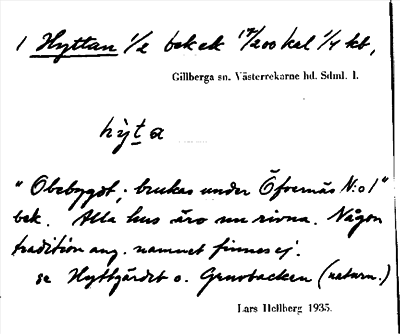 1 Hyttan 1/2 bek ek 17/200 kel 1/4 kb,
Gillberga sn. Västerrekarne hd. Sdml. I.
hỳta
"Obebygdt; brukas under Öfvernäs N:o 1"
bek. Alla hus äro nu rivna. Någon
tradition ang. namnet finnes ej.
se Hyttgärdet o. Genvbacken (naturn.)
Lars Hellberg 1935.